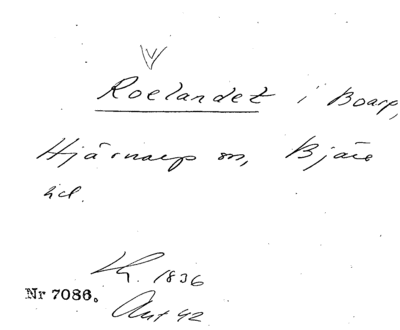 Roelandet i Boarp,
Hjärnarp sn, Bjäre
hd.
Kh. 1836
Nr 7086.
Ant 42